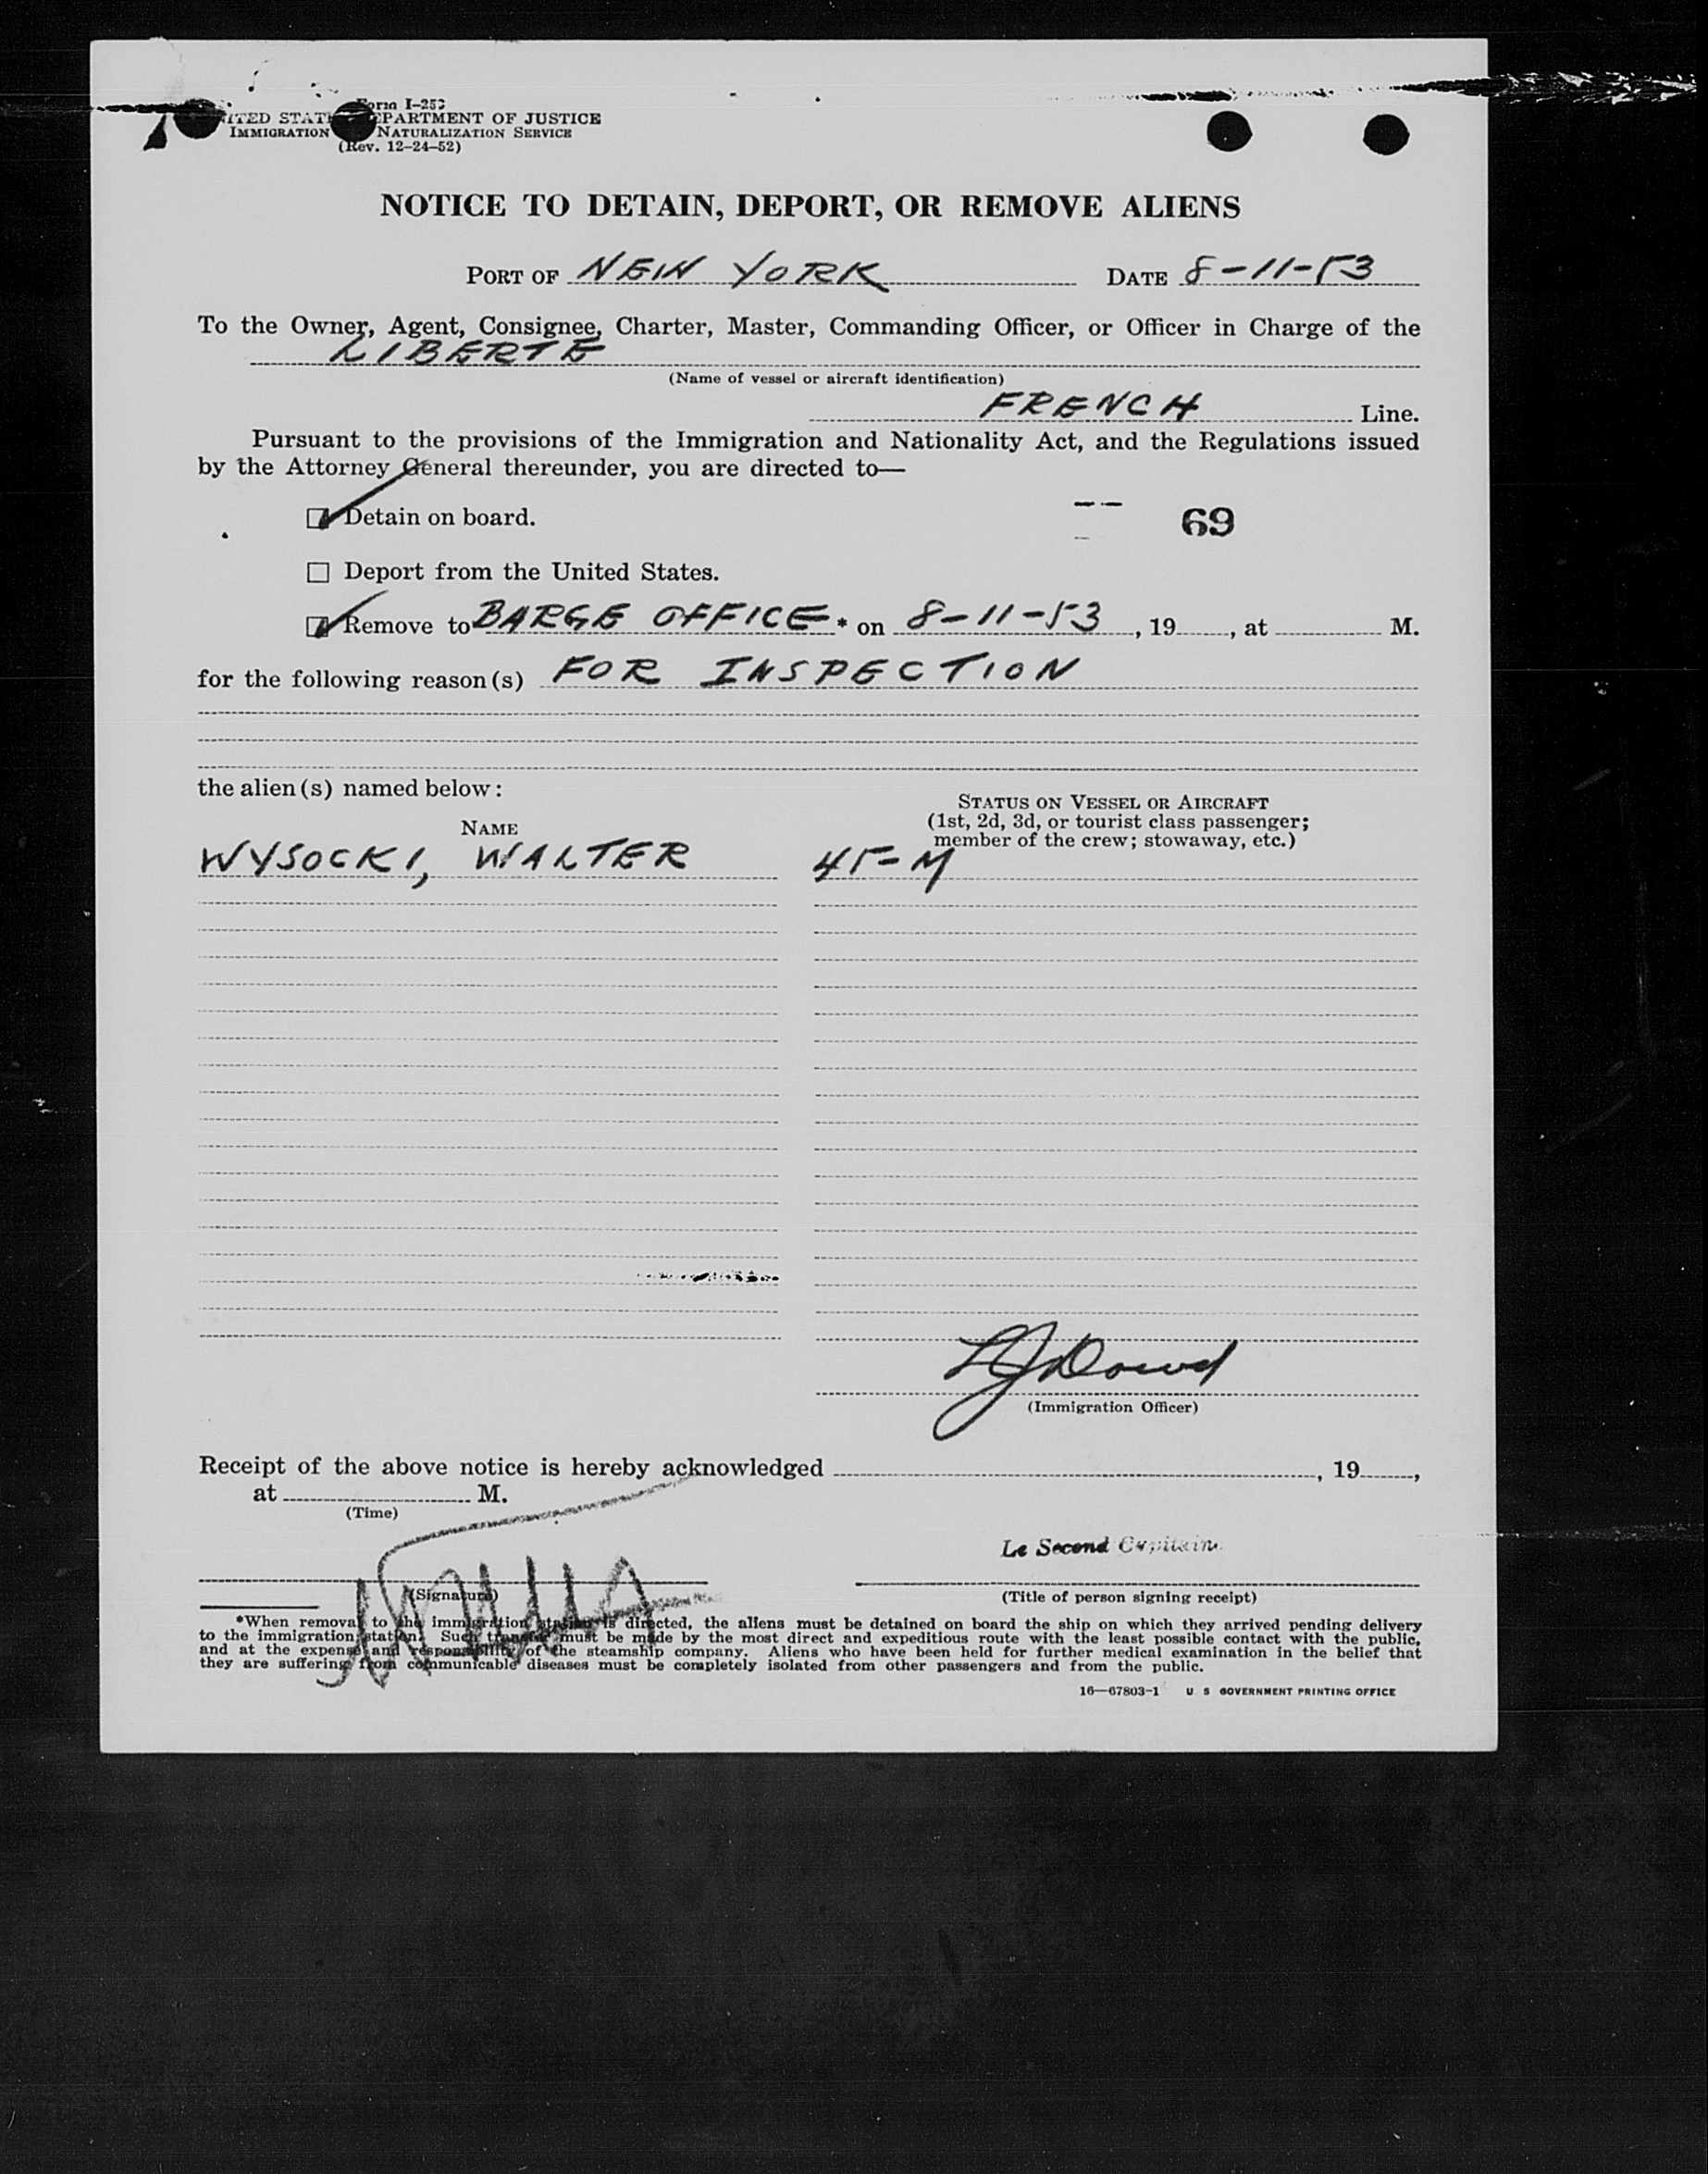 Form I-253
UNITED STATES DEPARTMENT OF JUSTICE
IMMIGRATION NATURALIZATION SERVICE
(Rev. 12-24-52)
NOTICE TO DETAIN, DEPORT, OR REMOVE ALIENS
PORT OF NEW YORK DATE 8-11-53
To the Owner, Agent, Consignee, Charter, Master, Commanding Officer, or Officer in Charge of the
LIBERTE
(Name of vessel or aircraft identification)
FRENCH Line.
Pursuant to the provisions of the Immigration and Nationality Act, and the Regulations issued
by the Attorney General thereunder, you are directed to—
Detain on board.
69
Deport from the United States.
Remove to BARGE OFFICE* on 8-11-53, 19, at M.
for the following reason(s) FOR INSPECTION
the alien(s) named below:
STATUS ON VESSEL OR AIRCRAFT
(1st, 2d, 3d, or tourist class passenger;
member of the crew; stowaway, etc.)
NAME
WYSOCKI, WALTER 45-M
LJDowd
(Immigration Officer)
Receipt of the above notice is hereby acknowledged , 19 ,
at M.
(Time)
Le Second Capitaine
(Signature)
(Title of person signing receipt)
*When removal to the immigration station is directed, the aliens must be detained on board the ship on which they arrived pending delivery
to the immigration station. Such transfer must be made by the most direct and expeditious route with the least possible contact with the public,
and at the expense and responsibility of the steamship company. Aliens who have been held for further medical examination in the belief that
they are suffering from communicable diseases must be completely isolated from other passengers and from the public.
16—67803-1 U S GOVERNMENT PRINTING OFFICE